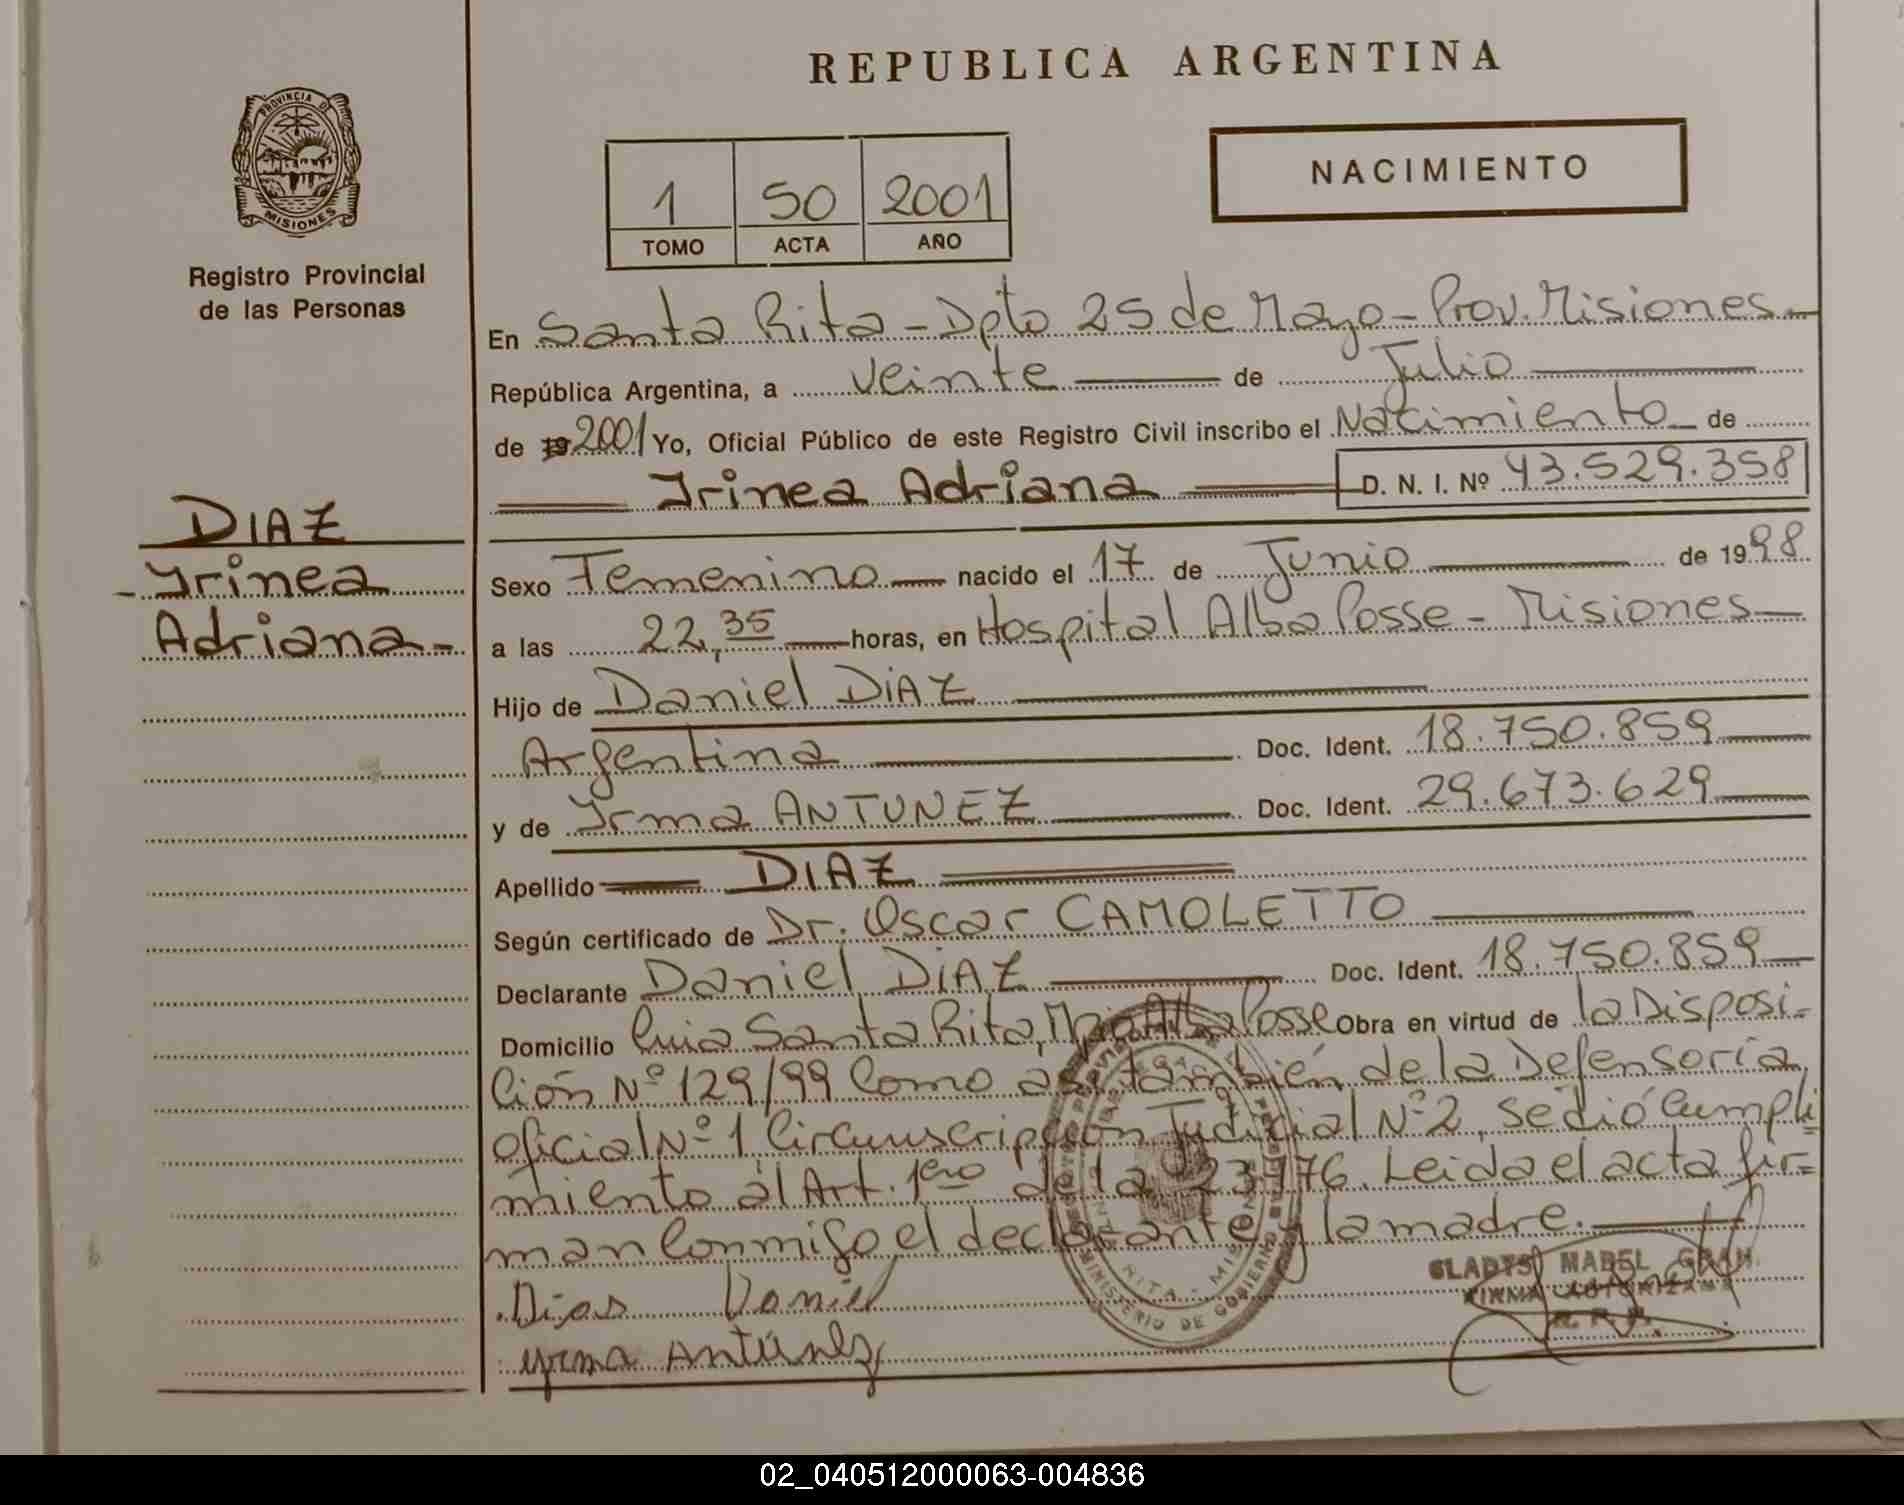 REPUBLICA ARGENTINA
PROVINCIA DE
MISIONES
Registro Provincial
de las Personas
1 50 2001
TOMO ACTA AÑO
NACIMIENTO
DIAZ
Yrinea
Adriana
En Santa Rita - Dpto 25 de Mayo - Prov. Misiones
República Argentina, a veinte de Julio
de 19 2001 Yo, Oficial Público de este Registro Civil inscribo el Nacimiento de
Yrinea Adriana D. N. I. Nº 43.529.358
Sexo Femenino nacido el 17 de Junio de 1998
a las 22,35 horas, en Hospital Alba Posse - Misiones
Hijo de Daniel DIAZ
Argentina Doc. Ident. 18.750.859
y de Yrma ANTUNEZ Doc. Ident. 29.673.629
Apellido DIAZ
Según certificado de Dr. Oscar CAMOLETTO
Declarante Daniel DIAZ Doc. Ident. 18.750.859
Domicilio Cnia Santa Rita, Mpio Alba Posse Obra en virtud de la Disposi-
ción Nº 129/99 Como así también de la Defensoría
oficial Nº 1 Circunscripción Judicial Nº 2, se dió Cumpli
miento al Art. 1ero de la 23776. Leida el acta fir=
man Conmigo, el declarante y la madre.
Dias Daniel
yrma Antúnez
GLADYS MABEL
FIRMA AUTORIZADA
R. P. P.
MINISTERIO DE GOBIERNO
RITA - MIS
02_040512000063-004836